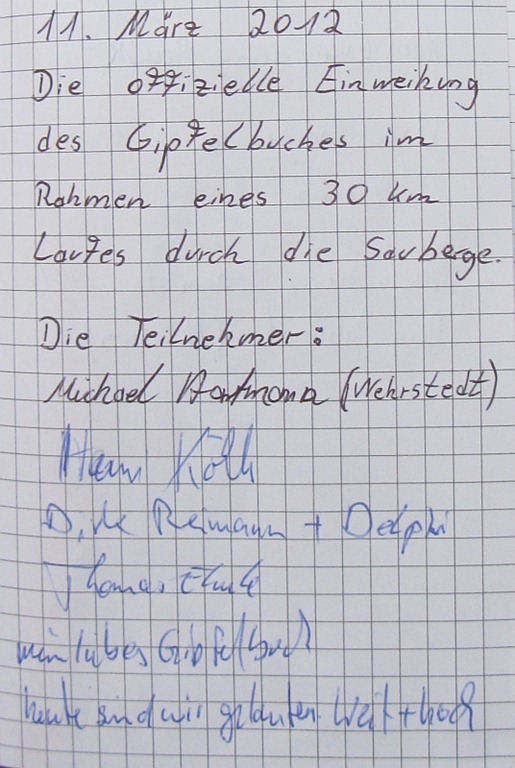 11. März 2012
Die offizielle Einweihung
des Gipfelbuches im
Rahmen eines 30 km
Laufes durch die Sauberge.
Die Teilnehmer:
Michael Hartmann (Wehrstedt)
Dirk Reimann + Delphi
Thomas
mein liebes Gipfelbuch
heute sind wir gelaufen weit + hoch